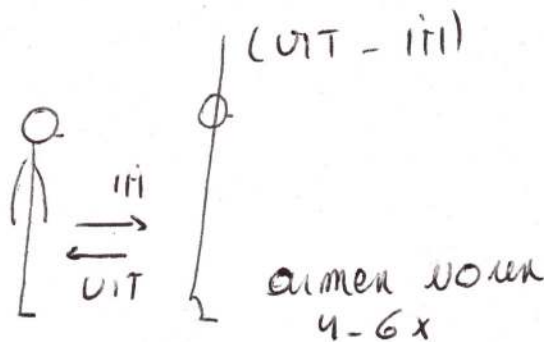 (UIT - IN)
IN
UIT
armen voren
4-6x